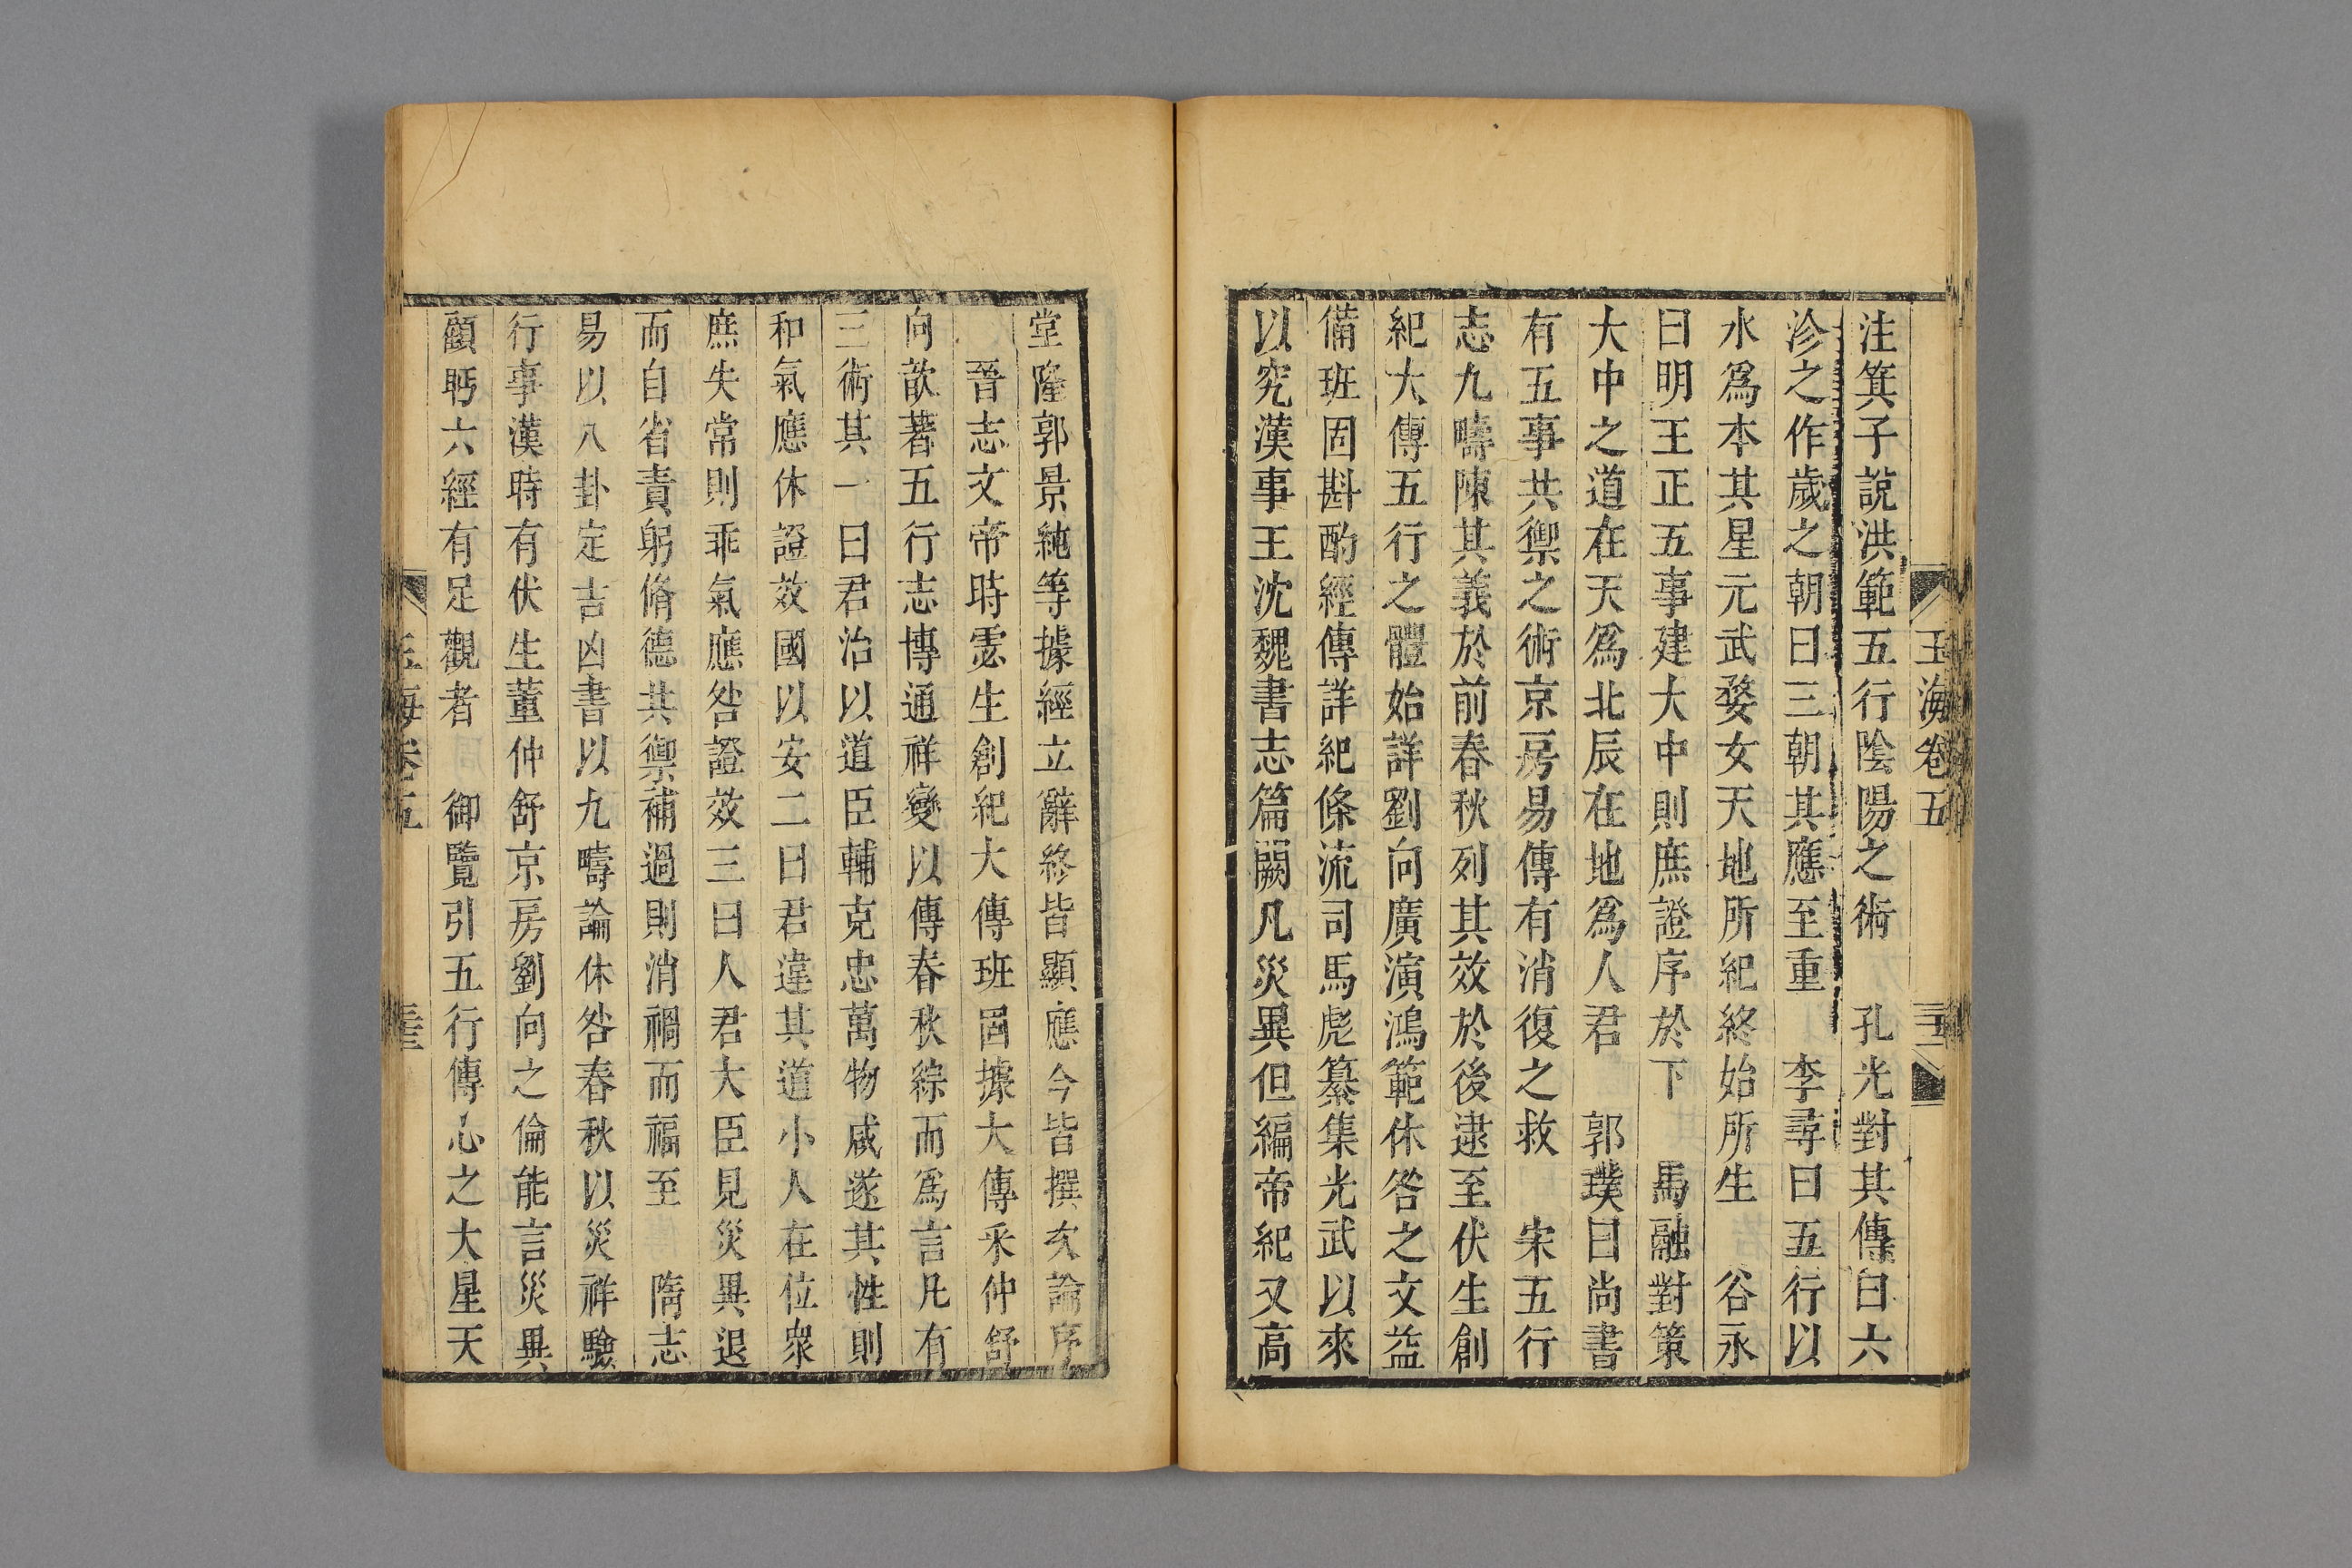 玉海卷五
三十二
注箕子說洪範五行陰陽之術 孔光對其傳曰六
沴之作歲之朝曰三朝其應至重 李尋曰五行以
水爲本其星元武婺女天地所紀終始所生 谷永
曰明王正五事建大中則庶證序於下 馬融對策
大中之道在天爲北辰在地爲人君 郭璞曰尚書
有五事共禦之術京房易傳有消復之救 宋五行
志九疇陳其義於前春秋列其效於後逮至伏生創
紀大傳五行之體始詳劉向廣演鴻範休咎之文益
備班固斟酌經傳詳紀條流司馬彪纂集光武以來
以究漢事王沈魏書志篇闕凡災異但編帝紀又高
堂隆郭景純等據經立辭終皆顯應今皆撰次論序
晉志文帝時虙生創紀大傳班固據大傳采仲舒
向歆著五行志博通祥變以傳春秋綜而爲言凡有
三術其一曰君治以道臣輔克忠萬物咸遂其性則
和氣應休證效國以安二曰君違其道小人在位衆
庶失常則乖氣應咎證效三曰人君大臣見災異退
而自省責躬脩德共禦補過則消禍而福至 隋志
易以八卦定吉凶書以九疇論休咎春秋以災祥驗
行事漢時有伏生董仲舒京房劉向之倫能言災異
顧眄六經有足觀者 御覽引五行傳心之大星天
玉海卷五